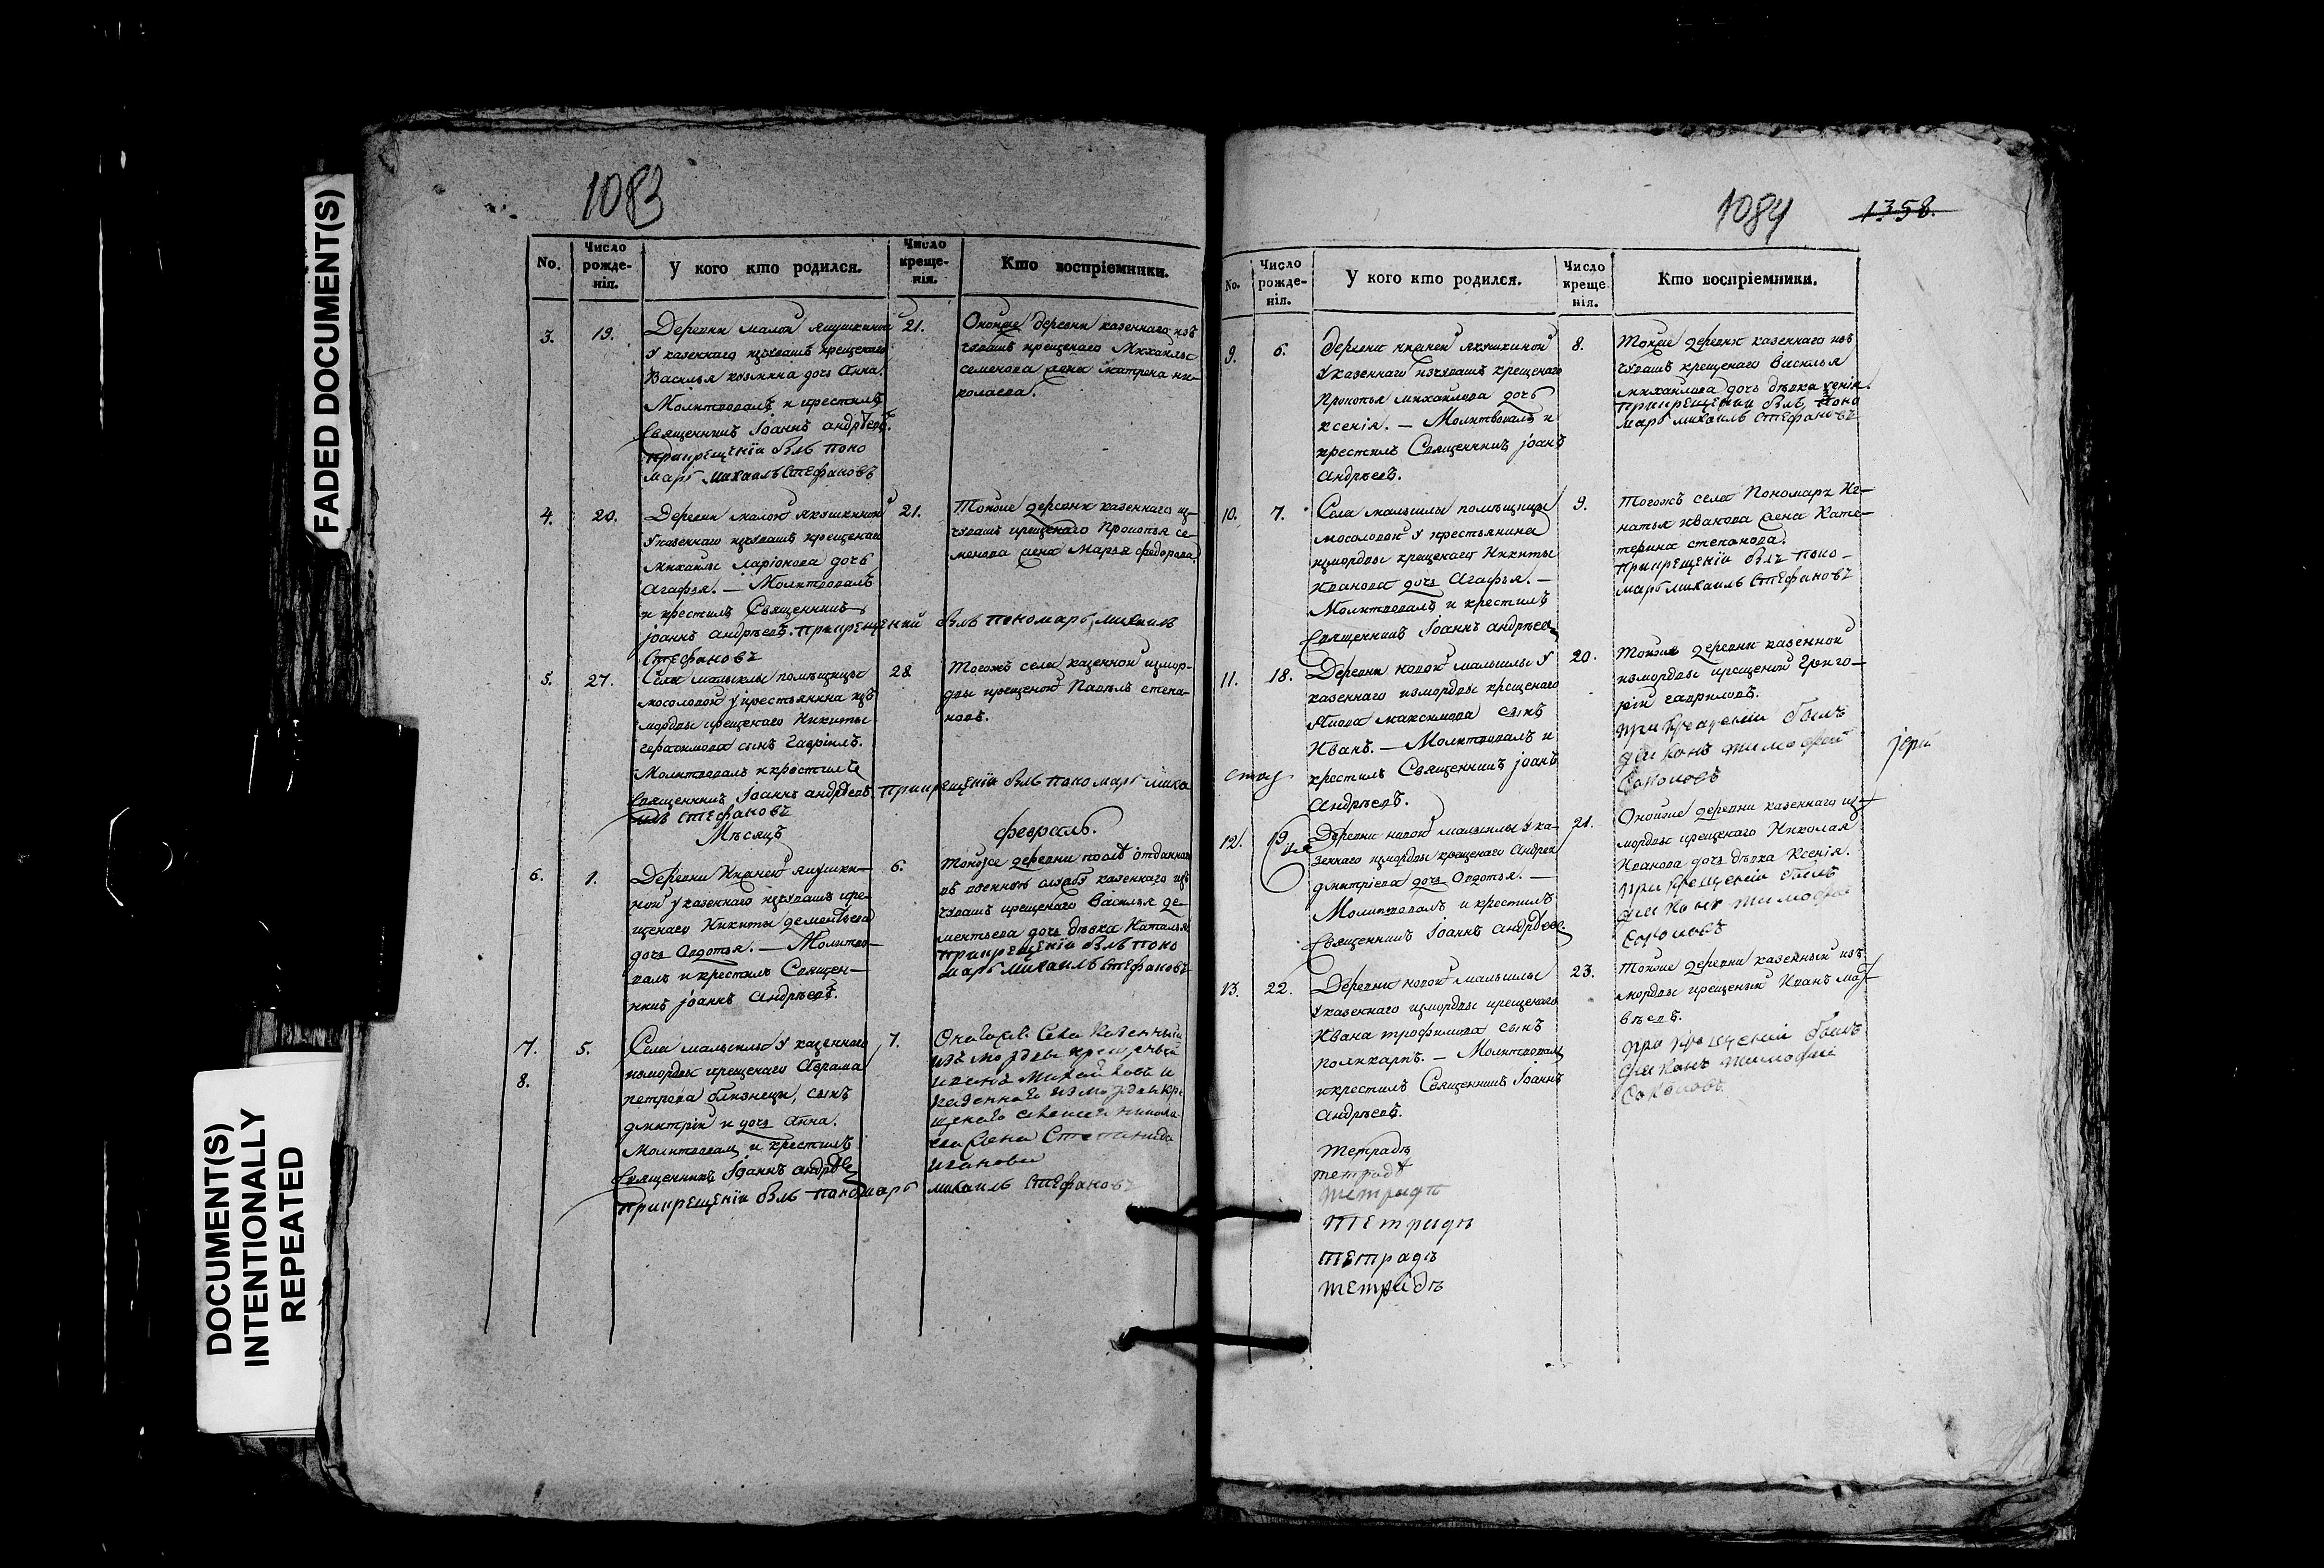 FADED DOCUMENT(S)
DOCUMENT(S)
INTENTIONALLY
REPEATED
1083
No.
Число
рожде-
нія.
У кого кто родился.
Число
креще-
нія.
Кто воспріемники.
3.
19.
Деревни малой якушкиной
у казеннаго изчувашъ крещенаго
Василья козмина дочь Анна.
Молитвовалъ и крестилъ
Священникъ Іоаннъ андрѣевъ.
прикрещеніи былъ поно
марь михаилъ Стефановъ
21.
Оной же деревни казеннаго изъ
чувашъ крещенаго Михайлы
семенова жена матрена ни-
колаева.
4.
20.
Деревни малой якушкиной
у казеннаго изчувашъ крещенаго
михайлы ларіонова дочь
Агафья. — Молитвовалъ
и крестилъ Священникъ
іоаннъ андрѣевъ. прикрещеніи былъ пономарь михаилъ
Стефановъ
21.
Тойже деревни казеннаго из-
чувашъ крещенаго Прокопья се-
менова жена Марья федорова
5.
27.
Села малыклы помѣщицы
мосоловой у крестьянина изъ
мордвы крещенаго Никиты
герасимова сынъ Гавріилъ.
Молитвовалъ и крестилъ
Священникъ Іоаннъ андрѣевъ прикрещеніи былъ пономарь миха
илъ Стефановъ
28
Тогожъ села казенной измор-
двы крещеной Павелъ степа-
новъ.
Мѣсяцъ
февраль.
6.
1.
Деревни якушки-
ной у казеннаго изчувашъ кре-
щенаго Никиты дементьева
дочь Авдотья. — Молитво-
валъ и крестилъ Священ-
никъ іоаннъ Андрѣевъ.
6.
Тойже деревни отданнаго
въ военною службу казеннаго изъ
чувашъ крещенаго Василья де-
ментьева дочь дѣвка Наталья
прикрещеніи былъ поно
марь михаилъ Стефановъ
7.
8.
5.
Села малыклы у казеннаго
измордвы крещенаго Аврама
петрова близнецы, сынъ
дмитрій и дочь Анна.
Молитвовалъ и крестилъ
Священникъ Іоаннъ андрѣевъ
прикрещеніи былъ пономарь михаилъ Стефановъ
7.
Села казенный
изъ мордвы крещеный
и
казеннаго из мордвы кре
щенаго никола
ева жена Степанида
иванова
1084
1358.
No.
Число
рожде-
нія.
У кого кто родился.
Число
креще
нія.
Кто воспріемники.
9.
6.
деревни якушкиной
у казеннаго изчувашъ крещенаго
прокопья михайлова дочь
ксенія. — Молитвовалъ и
крестилъ Священникъ іоаннъ
Андрѣевъ.
8.
Тойже деревни казеннаго изъ
чувашъ крещенаго Василья
михайлова дочь дѣвка ксенія.
прикрещеніи былъ поно
марь михаилъ Стефановъ
10.
7.
Села малыклы помѣщицы
мосоловой у крестьянина
измордвы крещенаго Никиты
Иванова дочь Агафья. —
Молитвовалъ и крестилъ
Священникъ Іоаннъ андрѣевъ
9.
Тогожъ села Пономаря Иг-
натья иванова жена Кате-
терина степанова.
прикрещеніи былъ поно-
марь михаилъ Стефановъ
11.
18.
Деревни новой малыклы у
казеннаго измордвы крещенаго
максимова сынъ
Иванъ. — Молитвовалъ и
крестилъ Священникъ іоаннъ
Андрѣевъ.
20.
Тойже деревни казенной
измордвы крещеной Григо-
рій гавриловъ.
при крещеніи былъ
діаконъ тимофей
Соколовъ
іерей
12.
19
Деревни новой малыклы у ка-
зеннаго измордвы крещенаго Андрея
дмитріева дочь Авдотья. —
Молитвовалъ и крестилъ
Священникъ Іоаннъ андрѣевъ
21.
Оной же деревни казеннаго из-
мордвы крещенаго Николая
Иванова дочь дѣвка Ксенія.
при крещеніи былъ
діаконъ тимофей
Соколовъ
13.
22.
Деревни новой малыклы
у казеннаго измордвы крещенаго
Ивана трофимова сынъ
поликарпъ. — Молитвовалъ
и крестилъ Священникъ Іоаннъ
Андрѣевъ.
23.
Тойже деревни казенный изъ
мордвы крещеный Иванъ мат-
вѣевъ.
при крещеніи былъ
діаконъ тимофей
Соколовъ
тетрадь
тетрадь
тетрадь
тетрадь
тетрадь
тетрадь